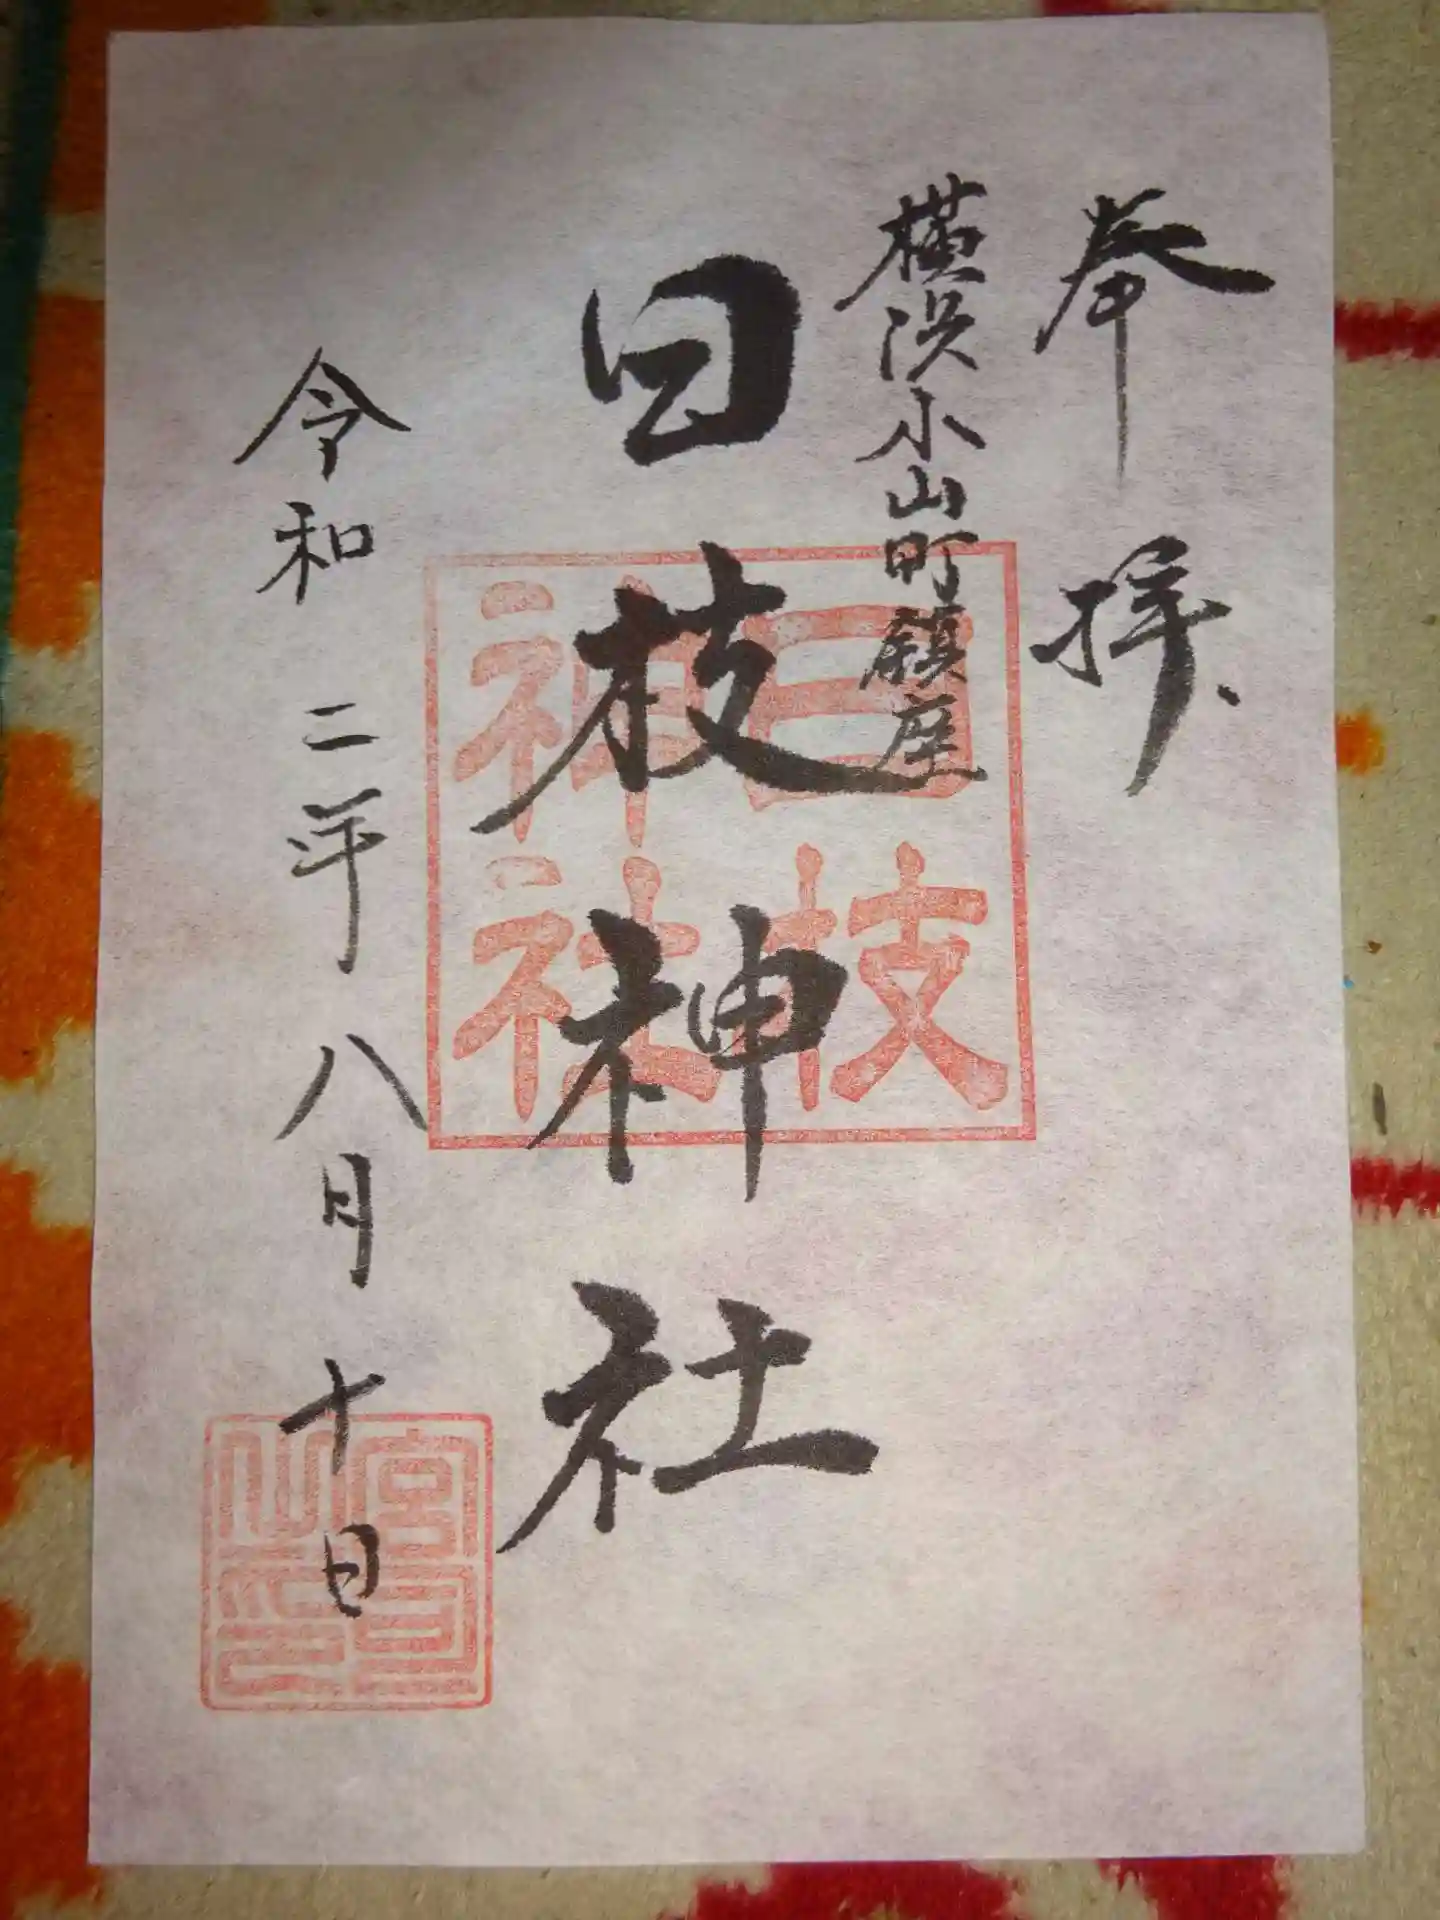 奉拝
横浜小山町鎮座
日枝神社
日枝神社
令和二年八月十日
宮司之印